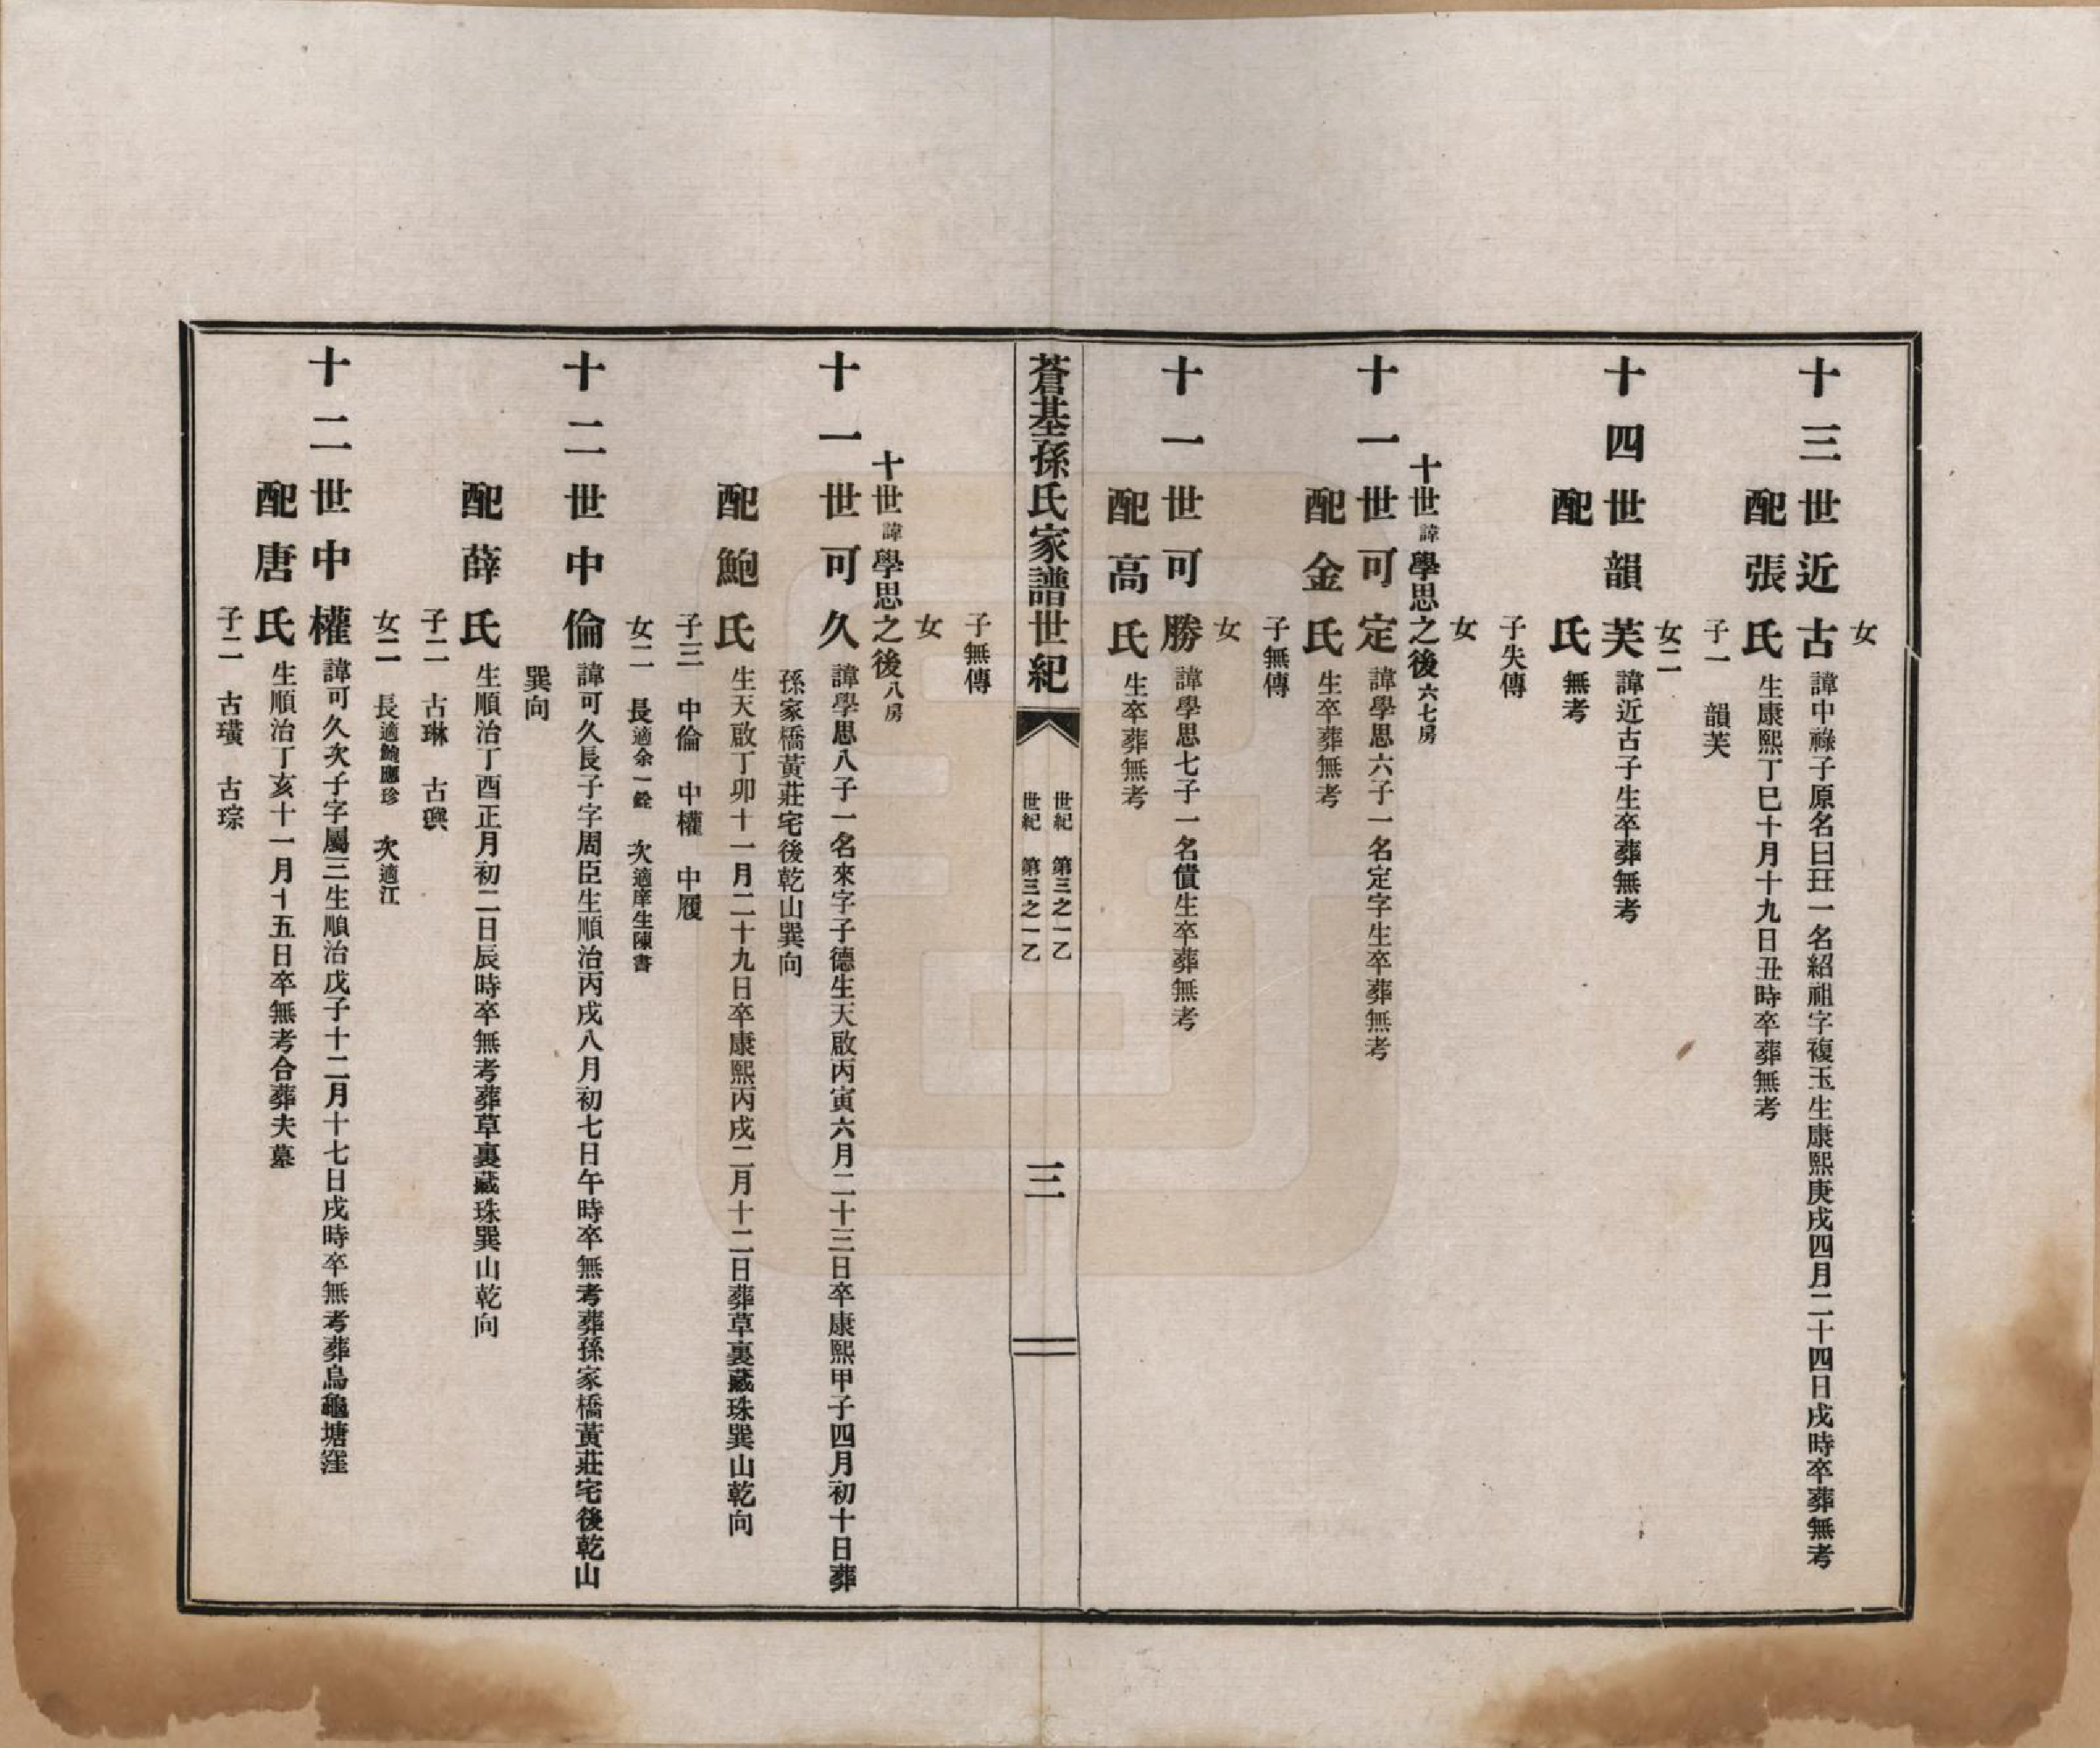 女
十三世近古 諱中祿子原名曰玨一名紹祖字複玉生康熙庚戌四月二十四日戌時卒葬無考
配張氏 生康熙丁巳十月十九日丑時卒葬無考
子一 韻芙
女二
十四世韻芙 諱近古子生卒葬無考
配 氏 無考
子失傳
女
十世諱學思之後六七房
十一世可定 諱學思六子一名定字生卒葬無考
配金氏 生卒葬無考
子無傳
女
十一世可勝 諱學思七子一名僨生卒葬無考
配高氏 生卒葬無考
蒼基孫氏家譜世紀
世紀 第三之一乙
世紀 第三之一乙
三
子無傳
女
十世諱學思之後八房
十一世可久 諱學思八子一名來字子德生天啟丙寅六月二十三日卒康熙甲子四月初十日葬
孫家橋黃莊宅後乾山巽向
配鮑氏 生天啟丁卯十一月二十九日卒康熙丙戌二月十二日葬草裏藏珠巽山乾向
子三 中倫 中權 中履
女二 長適余一銓 次適庠生陳書
十二世中倫 諱可久長子字周臣生順治丙戌八月初七日午時卒無考葬孫家橋黃莊宅後乾山
巽向
配薛氏 生順治丁酉正月初二日辰時卒無考葬草裏藏珠巽山乾向
子二 古琳 古璵
女二 長適鮑應珍 次適江
十二世中權 諱可久次子字屬三生順治戊子十二月十七日戌時卒無考葬烏龜塘窪
配唐氏 生順治丁亥十一月十五日卒無考合葬夫墓
子二 古璜 古琮